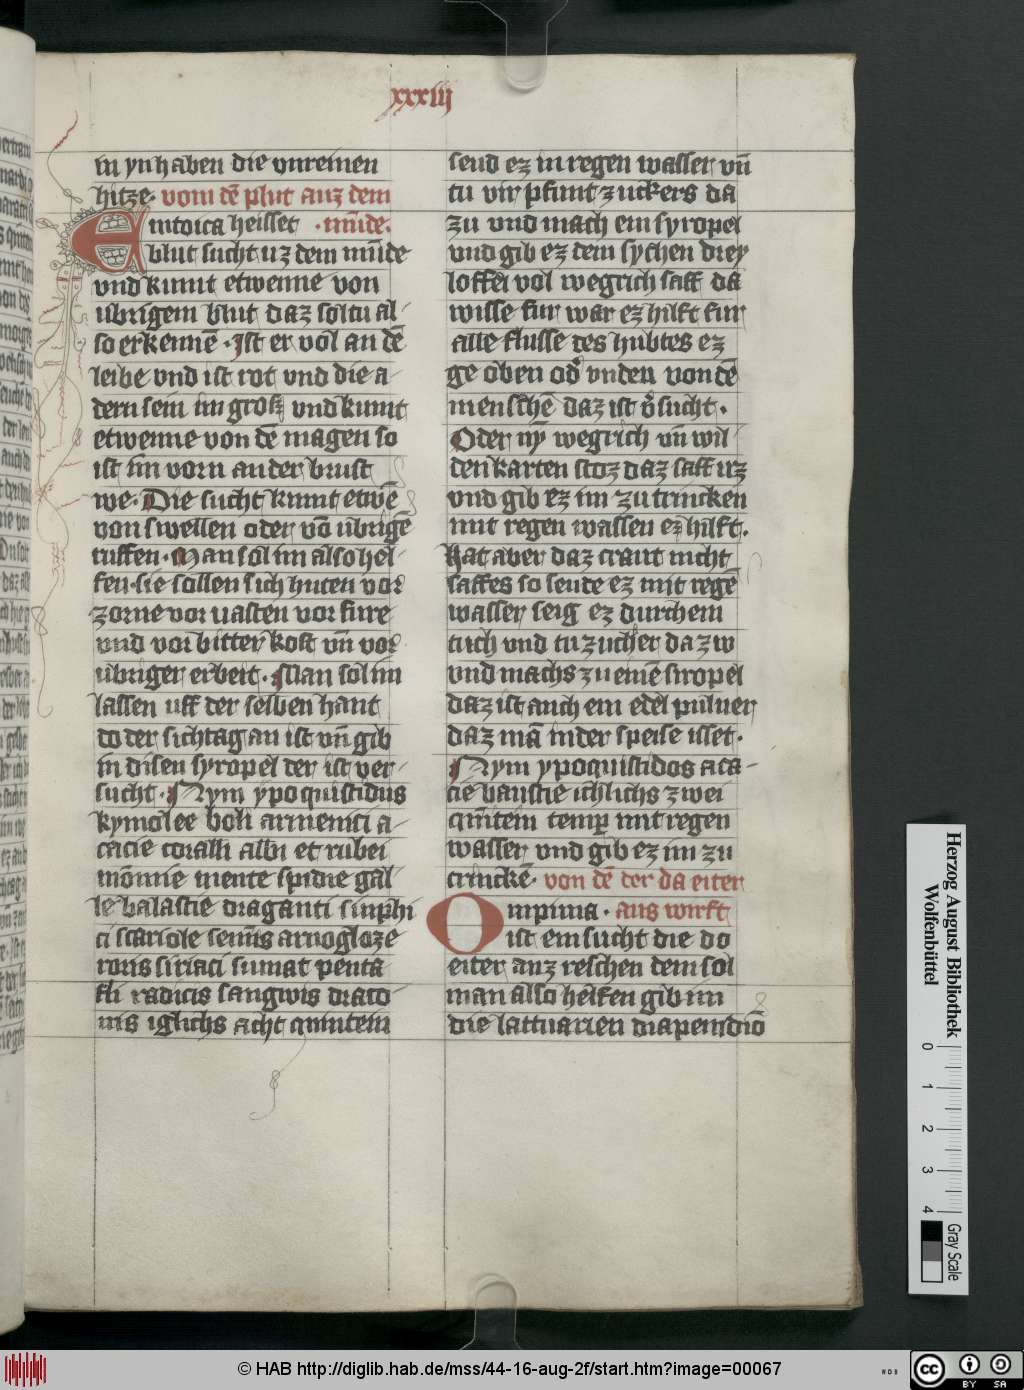 xxxiij
in yn haben die vnreinen
hitze. vom dē plut auz dem
Emtoica heisset . mūde.
blut sucht uz dem mūde
vnd kumt etwenne von
ubrigem blut daz soltu al-
so erkennē. Ist er vol an dē
leibe vnd ist rot vnd die a-
dern sein im grosz vnd kumt
etwenne von dē magen so
ist im vorn an der brust
we. Die sucht kumt etwē
von swellen oder vō ubrigē
ruffen. Man sol im also hel-
fen. sie sollen sich huten vor
zorne vor vasten vor fure
vnd vor bitter kost vn̄ vor
ubriger erbeit. Man sol im
lassen uff der selben hant
do der sichtag an ist vn̄ gib
in disen syropel der ist ver-
sucht. Nym ypoquistidus
kymolee boli armenici a-
cacie coralli albi et rubei
mōmie mente spidie gal-
le balastie draganti sinphi
ci scariole semīs arnogloze
roris siriaci sumat penta
fli radicis sangwis draco
nis iglichs acht quintein
seud ez in regen wasser vn̄
tu vir pfunt zuckers da
zu vnd mach ein syropel
vnd gib ez dem sychen drey
loffel vol wegrich saff da
wisse fur war ez hilft fur
alle flusse des hubtes ez
ge oben od' vnden von dē
menschē daz ist v'sucht.
Oder nȳ wegrich vn̄ wil-
den karten stoz daz saff uz
vnd gib ez im zu trincken
mit regen wassen ez hilft.
hat aber daz craut nicht
saffes so seude ez mit regē
wasser seig ez durch ein
tuch vnd tu zucher da zw
vnd machs zu einē siropel
daz ist auch ein edel puluer
daz mā in der speise isset.
Nym ypoquistidos aca-
cie baustie ichlichs zwei
quītein temp mit regen
wasser vnd gib ez im zu
trinckē. von dē der da eiter
Ompima. aus wirft
ist ein sucht die do
eiter auz reschen dem sol
man also helfen gib im
die lattuarien diapendiō
Herzog August Bibliothek
Wolfenbüttel
0
1
2
3
4
Gray Scale
© HAB http://diglib.hab.de/mss/44-16-aug-2f/start.htm?image=00067
cc
BY SA